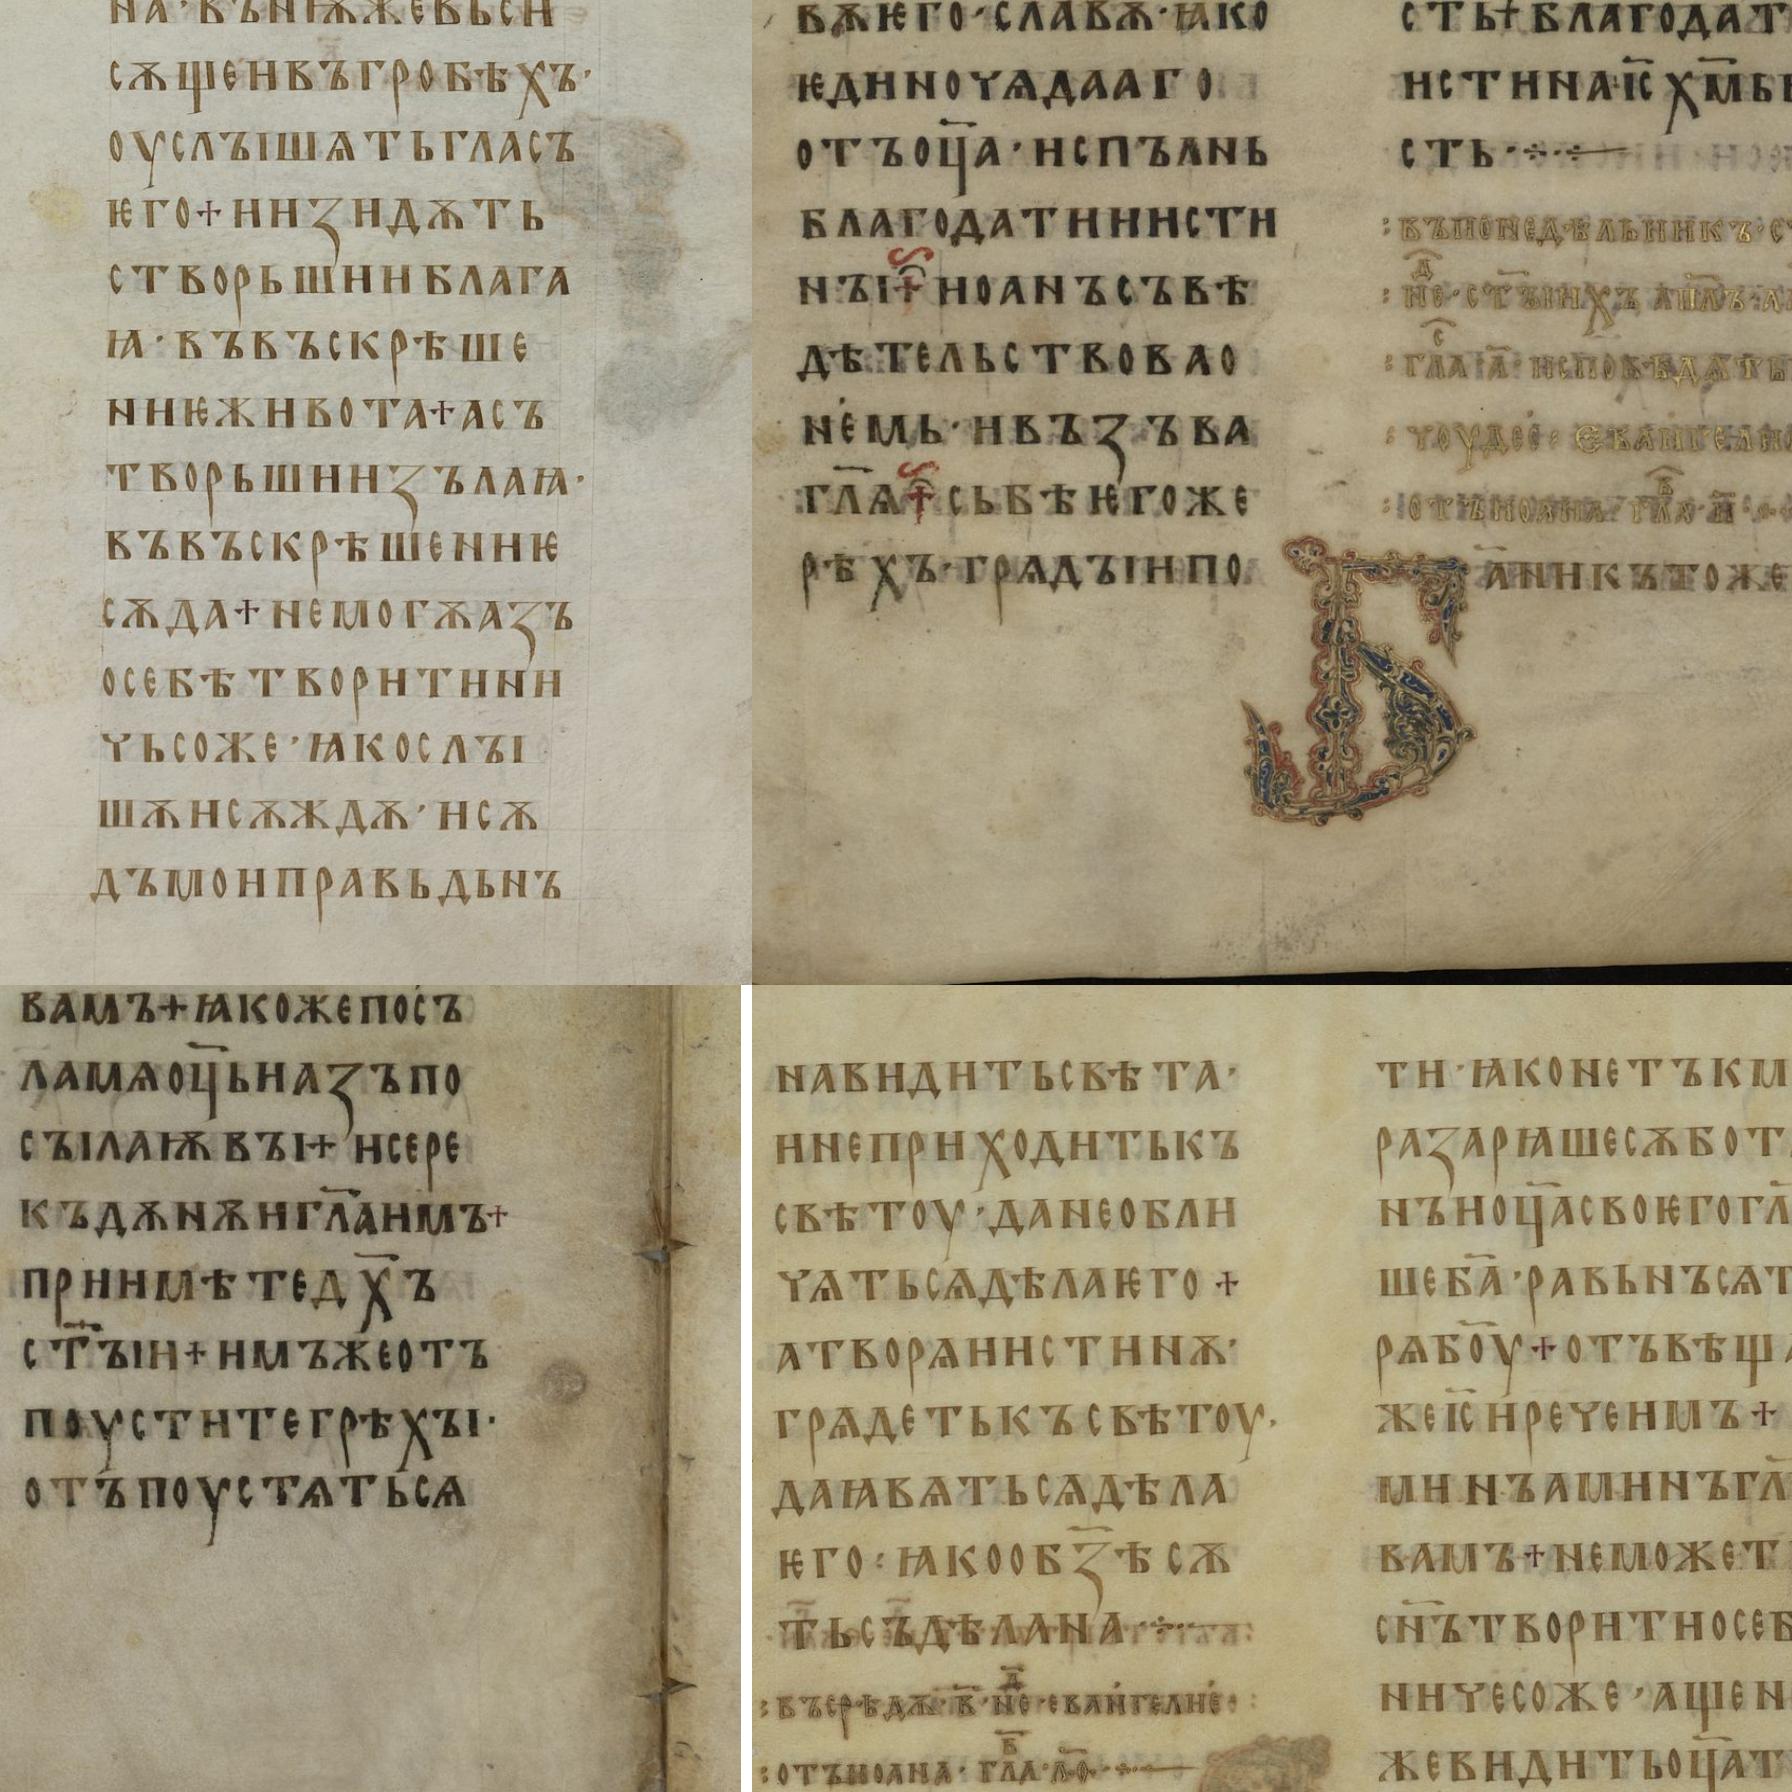 на · вънѭжевьси
сѫщенвъгробѣхъ ·
оуслъішѧтьгласъ
ѥго+ инзидѫть
створьшинблага
ꙗ · въвъскрѣше
ниѥживота+асъ
творьшинзълаꙗ ·
въвъскрѣшениѥ
сѫда+немогѫазъ
осебѣтворитини
чьсоже · ꙗкослъі
шѫнсѫждѫ · исѫ
дъмоиправьдьнъ
вѫѥго · славѫ · ꙗко
ѥдиночѧдааго
отъоц҃а · испълнь
благодатиниисти
нъі+иоанъсъвѣ
дѣтельствовао
немь · ивъзъва
гл҃ѧ+сьбѣѥгоже
рѣхъ · грѧдъіипо
сть+благодат
истинаіс҃хм҃ь
сть ·
: въпонедѣльникъ · с
: не · ст҃ъіихъ ап҃лъ ·
: гла а҃ · исповѣдѧть
: чоудес : Евангели
: отъиоана · гла · и҃
Б аникътоже
вамъ+ꙗкожепосъ
ламѧоц҃ьиазъпо
съілаѭвъі+ исере
къдѫнѫигл҃аимъ+
приимѣтедх҃ъ
ст҃ъіи+имъжеотъ
поуститегрѣхъі ·
отъпоустѧтьсѧ
навидитьсвѣта ·
инеприходитькъ
свѣтоу · данеобли
чѧтьсѧдѣлаѥго +
атворѧиистинѫ ·
грѧдетькъсвѣтоу ·
даꙗвѧтьсѧдѣла
ѥго : ꙗкоообз҃ѣсѫ
тьсъдѣлана
: въсрѣдѫ · в҃ · не · евангелиѥ :
: отъиоана · гла · л҃о ·
ти · ꙗконетъкм
разарꙗшесѫбот
нъиоц҃асвоѥгогл҃
шеб҃а · равьнъсѧт
рѧбо҃у+отъвѣща
жеіс҃иречеимъ +
минъаминъгл҃
вамъ+неможет
сн҃ътворитиосеб
ничесоже · ащен
ževидитьоц҃ат